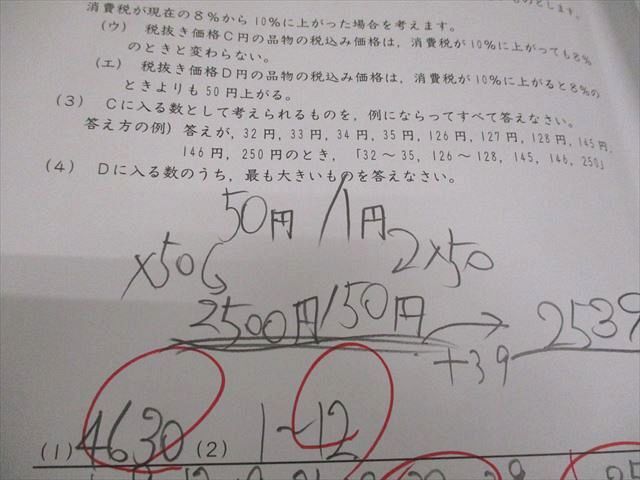 ものとします。
消費税が現在の8%から10%に上がった場合を考えます。
(ウ) 税抜き価格C円の品物の税込み価格は,消費税が10%に上がっても8%
のときと変わらない。
(エ) 税抜き価格D円の品物の税込み価格は,消費税が10%に上がると8%の
ときよりも50円上がる。
(3) Cに入る数として考えられるものを,例にならってすべて答えなさい。
答え方の例) 答えが,32円,33円,34円,35円,126円,127円,128円,145円,
146円,250円のとき,「32~35,126~128,145,146,250」
(4) Dに入る数のうち,最も大きいものを答えなさい。
50円/1円
×50 2×50
2500円/50円 2539
+39
(1) 4630 (2) 1~12